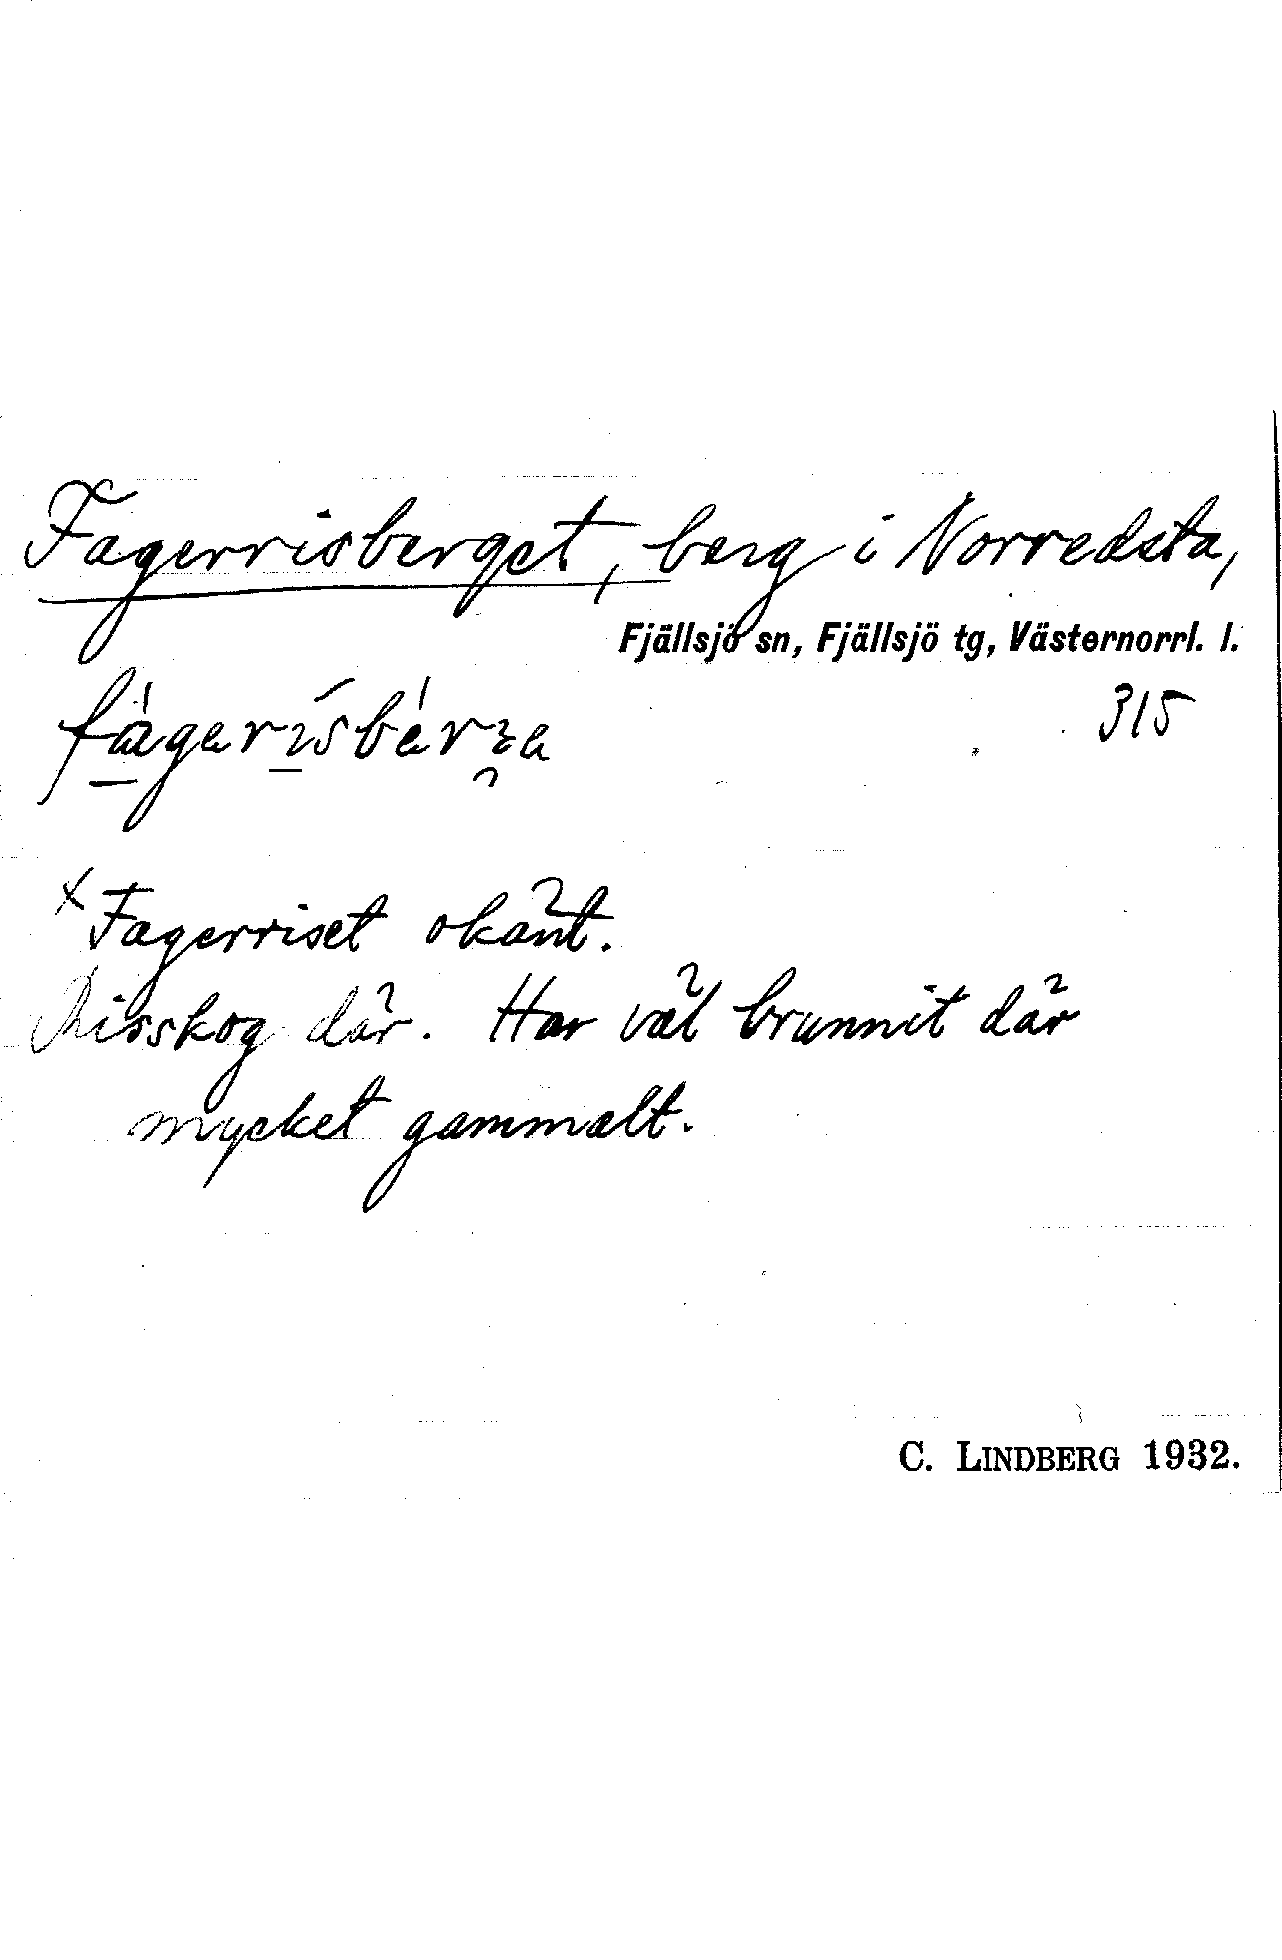 Fagerrisberget, berg i Norredsta,
Fjällsjö sn, Fjällsjö tg, Västernorrl. l.
315
ˣFagerriset okänt.
Risskog där. Har väl brunnit där
mycket gammalt.
C. LINDBERG 1932.